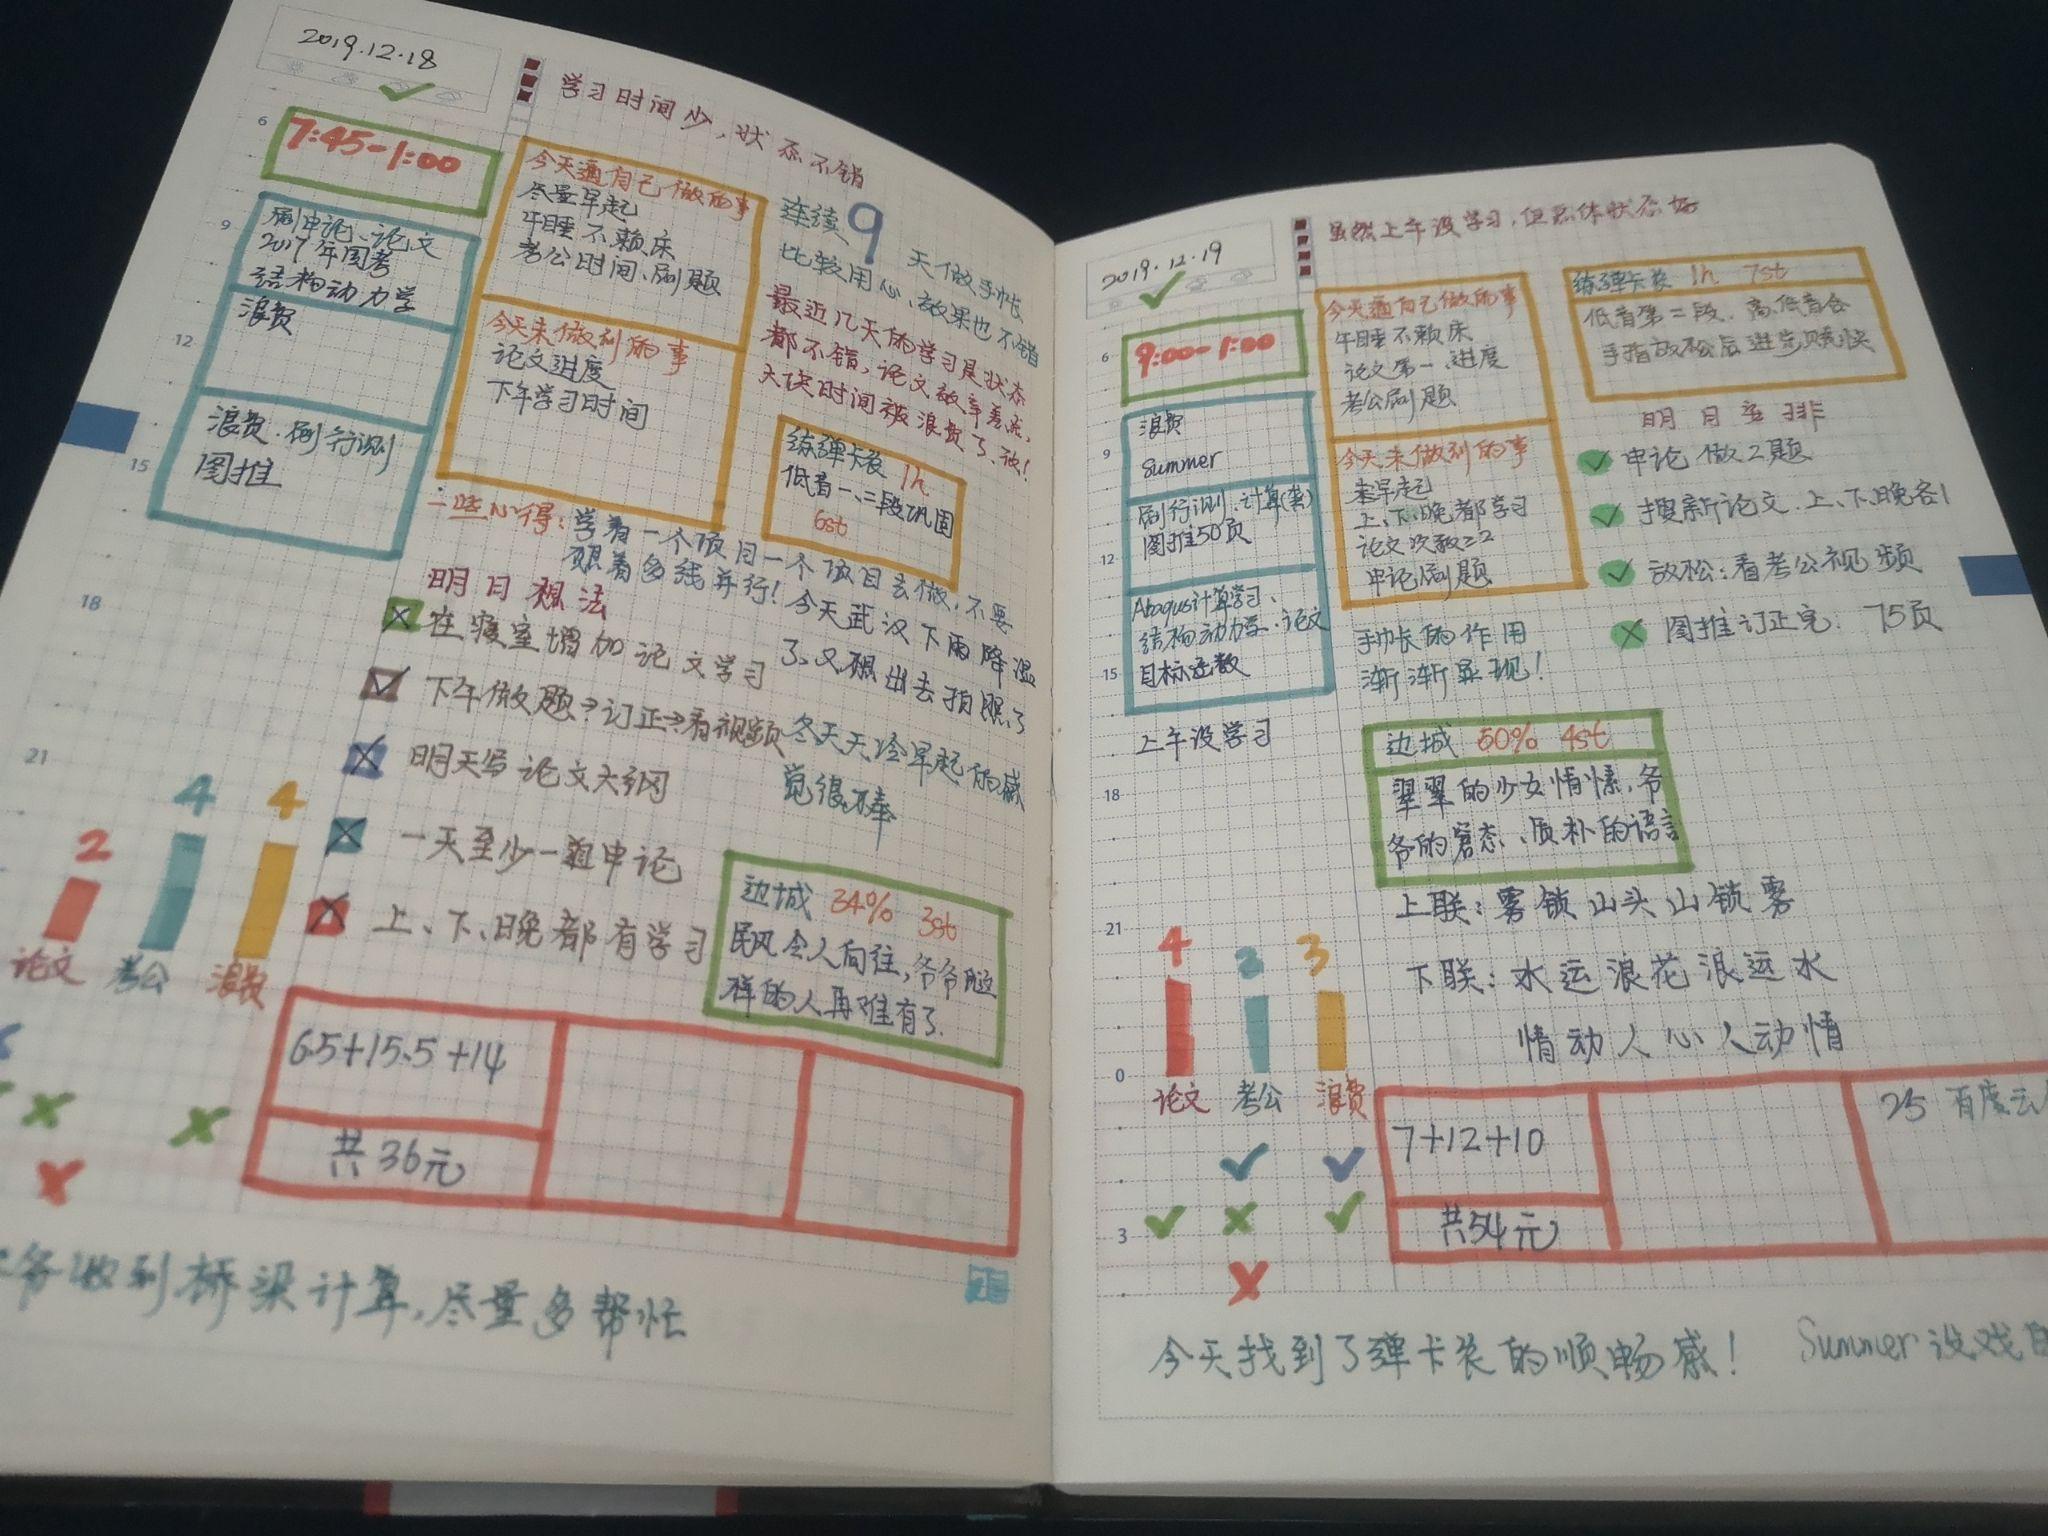 2019.12.18
学习时间少,状态不错
6
7:45-1:00
9
刷申论、论文
2017年国考
结构动力学
12
浪费
15
浪费.刷行测
图推
18
21
今天逼自己做的事
尽量早起
午睡不赖床
考公时间、刷题
今天未做到的事
论文进度
下午学习时间
连续9天做手帐
比较用心、效果也不错
最近几天的学习是状态
都不错,论文效率差点,
大块时间被浪费了、欸!
练弹卡农 1h
低音一、二段巩固
6st
一些心得:学着一个项目一个项目去做,不要
想着多线并行!
今天武汉下雨降温
了、又想出去拍照了
冬天天冷早起的感
觉很不棒
明日想法
在寝室增加论文学习
下午做题→订正→看视频
明天写论文大纲
一天至少一道申论
上、下、晚都有学习
2 4 4
论文 考公 浪费
边城 34% 3st
民风令人向往,爷爷
样的人再难有了.
6.5+15.5+14
共36元
做到桥梁计算,尽量多帮忙
2019.12.19
虽然上午没学习,但总体状态好
6
9:00-1:00
9
浪费
Summer
12
刷行测、计算(套)
图推50页
15
Abaqus计算学习、
结构动力学、论文
目标函数
上午没学习
18
21
0
3
今天逼自己做的事
午睡不赖床
论文第一、进度
考公刷题
今天未做到的事
未早起
上、下、晚都学习
论文次数=2
申论刷题
手帐的作用
渐渐显现!
练弹卡农 1h 7st
低音第二段、高、低音合
手指放松后进步贼快
明日安排
申论做2题
搜新论文.上、下、晚各1
放松:看考公视频
图推订正完: 75页
边城 50% 4st
翠翠的少女情愫,爷
爷的窘态、质朴的语言
上联:雾锁山头山锁雾
下联:水运浪花浪运水
情动人心人动情
4 3
论文 考公 浪费
7+12+10
共54元
25 百度云
今天找到了弹卡农的顺畅感! Summer没戏